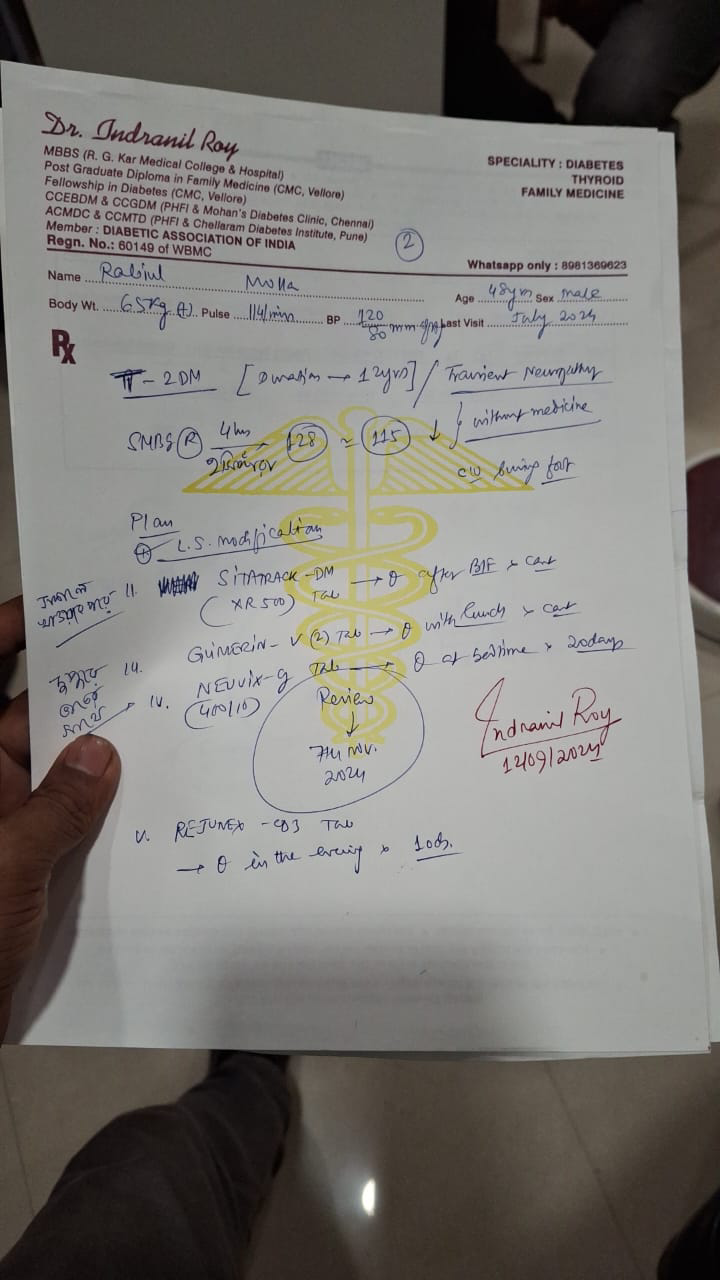 Dr. Indranil Roy
MBBS (R. G. Kar Medical College & Hospital)
Post Graduate Diploma in Family Medicine (CMC, Vellore)
Fellowship in Diabetes (CMC, Vellore)
CCEBDM & CCGDM (PHFI & Mohan's Diabetes Clinic, Chennai)
ACMDC & CCMTD (PHFI & Chellaram Diabetes Institute, Pune)
Member : DIABETIC ASSOCIATION OF INDIA
Regn. No.: 60149 of WBMC
SPECIALITY : DIABETES
THYROID
FAMILY MEDICINE
2
Whatsapp only : 8981369623
Name Rabiul Molla Age 48yrs Sex male
Body Wt. 65kg Pulse 114/min BP 120/80 mm Hg Last Visit July 2024
Rx
T-2DM [Duration → 12yrs] / Transient Neuropathy
SMBG (R) 4hrs 128 ≈ 115 ↓ } without medicine
foot
Plan
L.S. modification
SITATRACK-DM Tab → after B/F x cont
(XR 500)
Tab → with lunch x cont
NEUVIX-g Tab → at bedtime x 20days
(400/10)
Review
↓
7th Nov.
2024
Indranil Roy
12/09/2024
V. REJUNEX-CD3 Tab
→ in the evening x